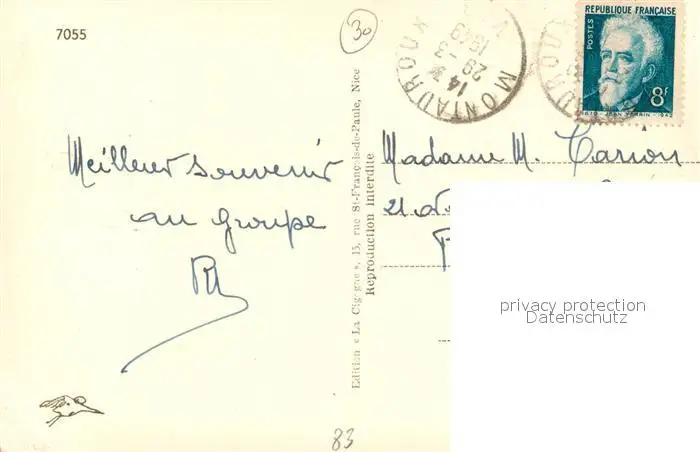 7055
30
Meilleur souvenir
au groupe
Edition « La Cigogne », 15, rue St-François-de-Paule, Nice
Reproduction interdite
83
MONTAUROUX
14 H
29 -3
1949
REPUBLIQUE FRANÇAISE
POSTES
8f
1870 - JEAN PERRIN - 1942
Madame M.
21
privacy protection
Datenschutz